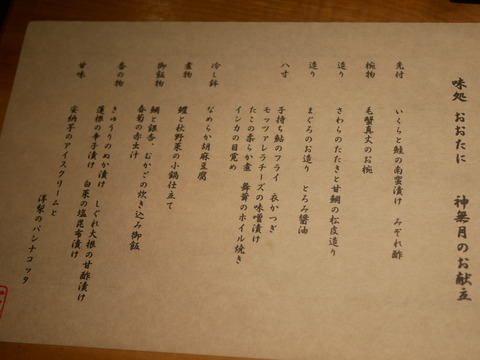 味処 おおたに 神無月のお献立
先付 いくらと鮭の南蛮漬け みぞれ酢
椀物 毛蟹真丈のお椀
造り さわらのたたきと甘鯛の松皮造り
造り まぐろのお造り とろみ醤油
八寸 子持ち鮎のフライ 衣かつぎ
モッツァレラチーズの味噌漬け
たこの柔らか煮 舞茸のホイル焼き
インカの目覚め
冷し鉢 なめらか胡麻豆腐
煮物 鱧と秋野菜の小鍋仕立て
御飯物 鯛と銀杏、むかごの炊き込み御飯
春菊の赤出汁
香の物 きゅうりのぬか漬け しぐれ大根の甘酢漬け
蓮根の辛子漬け 白菜の塩昆布漬け
甘味 安納芋のアイスクリームと
洋梨のパンナコッタ